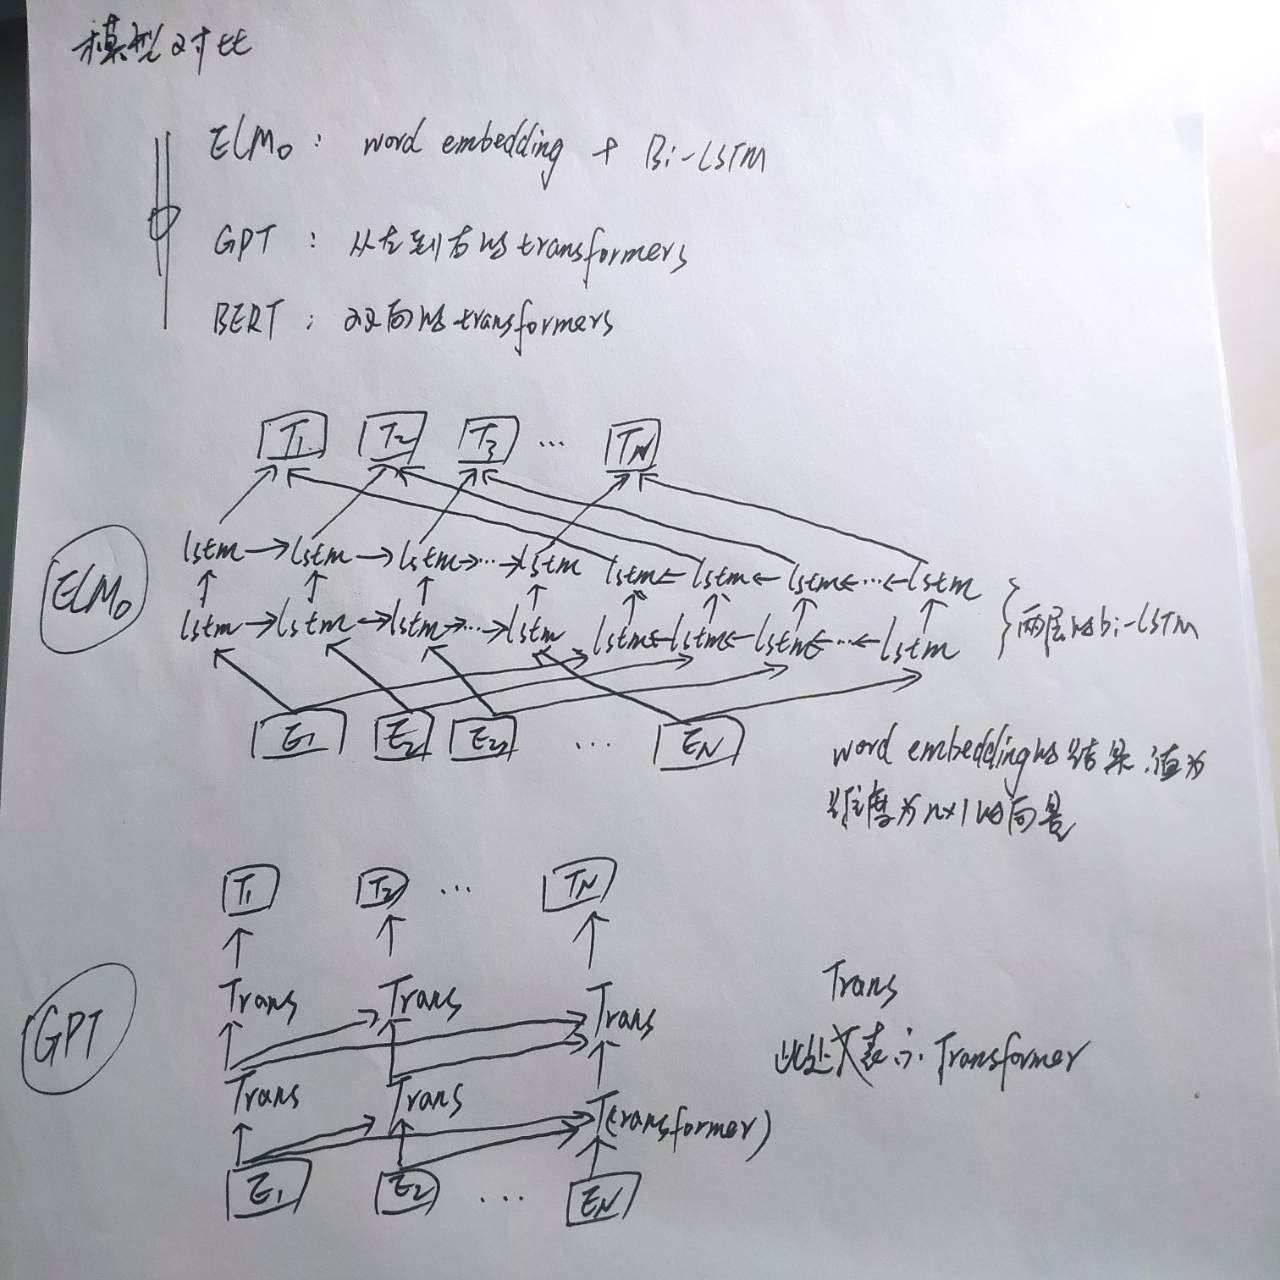 模型对比
ELMo : word embedding + Bi-LSTM
GPT : 从左到右的transformers
BERT : 双向的transformers
T1 T2 T3 ... TN
ELMo
lstm → lstm → lstm → ... → lstm lstm ← lstm ← lstm ← ... ← lstm
lstm → lstm → lstm → ... → lstm lstm ← lstm ← lstm ← ... ← lstm
} 两层的bi-LSTM
E1 E2 E3 ... EN
word embedding的结果:值为
维度为n×1的向量
T1 T2 ... TN
GPT
Trans Trans Trans
Trans Trans T(ransformer)
E1 E2 ... EN
Trans
此处表示Transformer